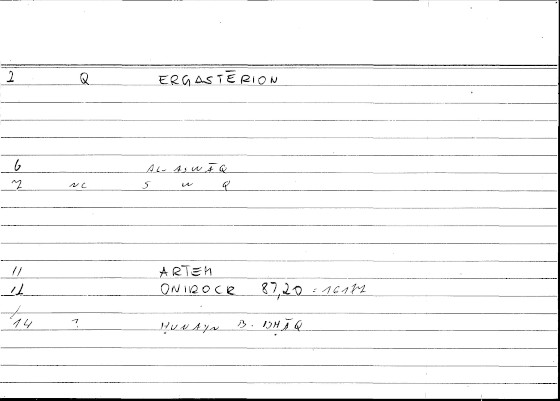 2 Q ERGASTĒRION
6 AL-ASWĀQ
7 NL S W Q
11 ARTEM
12 ONIROCR 87,20 = 16172
14 ? ḤUNAYN B. ISḤĀQ